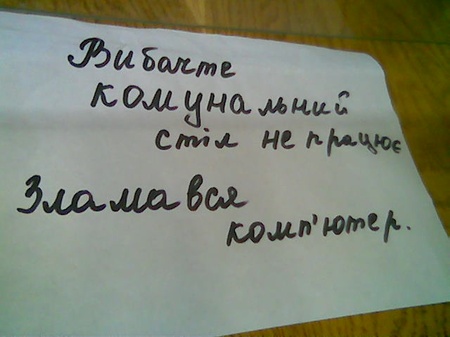 Вибачте
комунальний
стіл не працює
Зламався
комп'ютер.